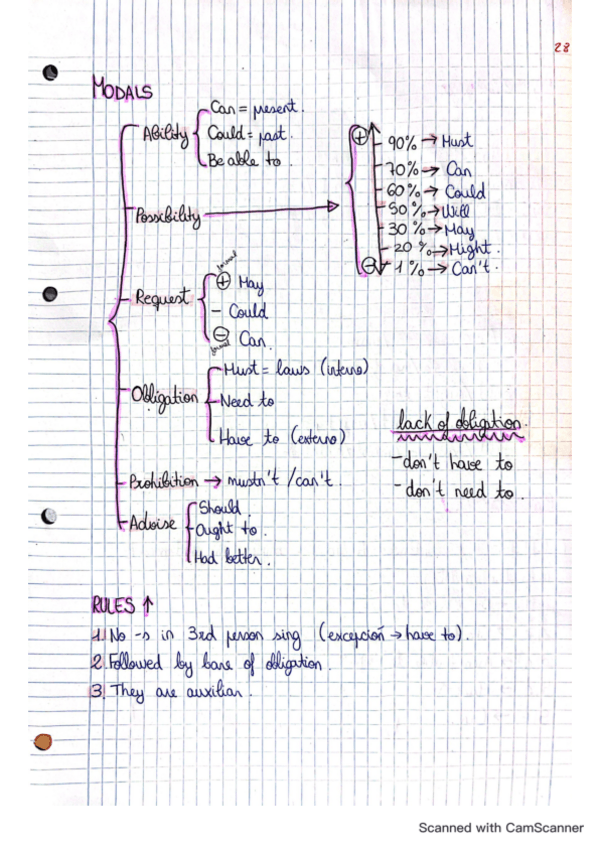 28
MODALS
Ability
Can = present.
Could = past.
Be able to.
Possibility →
+
90% → Must
70% → Can
60% → Could
50% → Will
30% → May
20% → Might.
- 1% → Can't.
Request
formal
+ May
- Could
- Can.
formal
Obligation
Must = laws (interno)
Need to
Have to (externo)
lack of obligation.
-don't have to
-don't need to.
Prohibition → mustn't / can't.
Advise
Should.
Ought to.
Had better.
RULES ↑
1. No -s in 3rd person sing (excepción → have to).
2. Followed by bare of obligation.
3. They are auxiliar.
Scanned with CamScanner